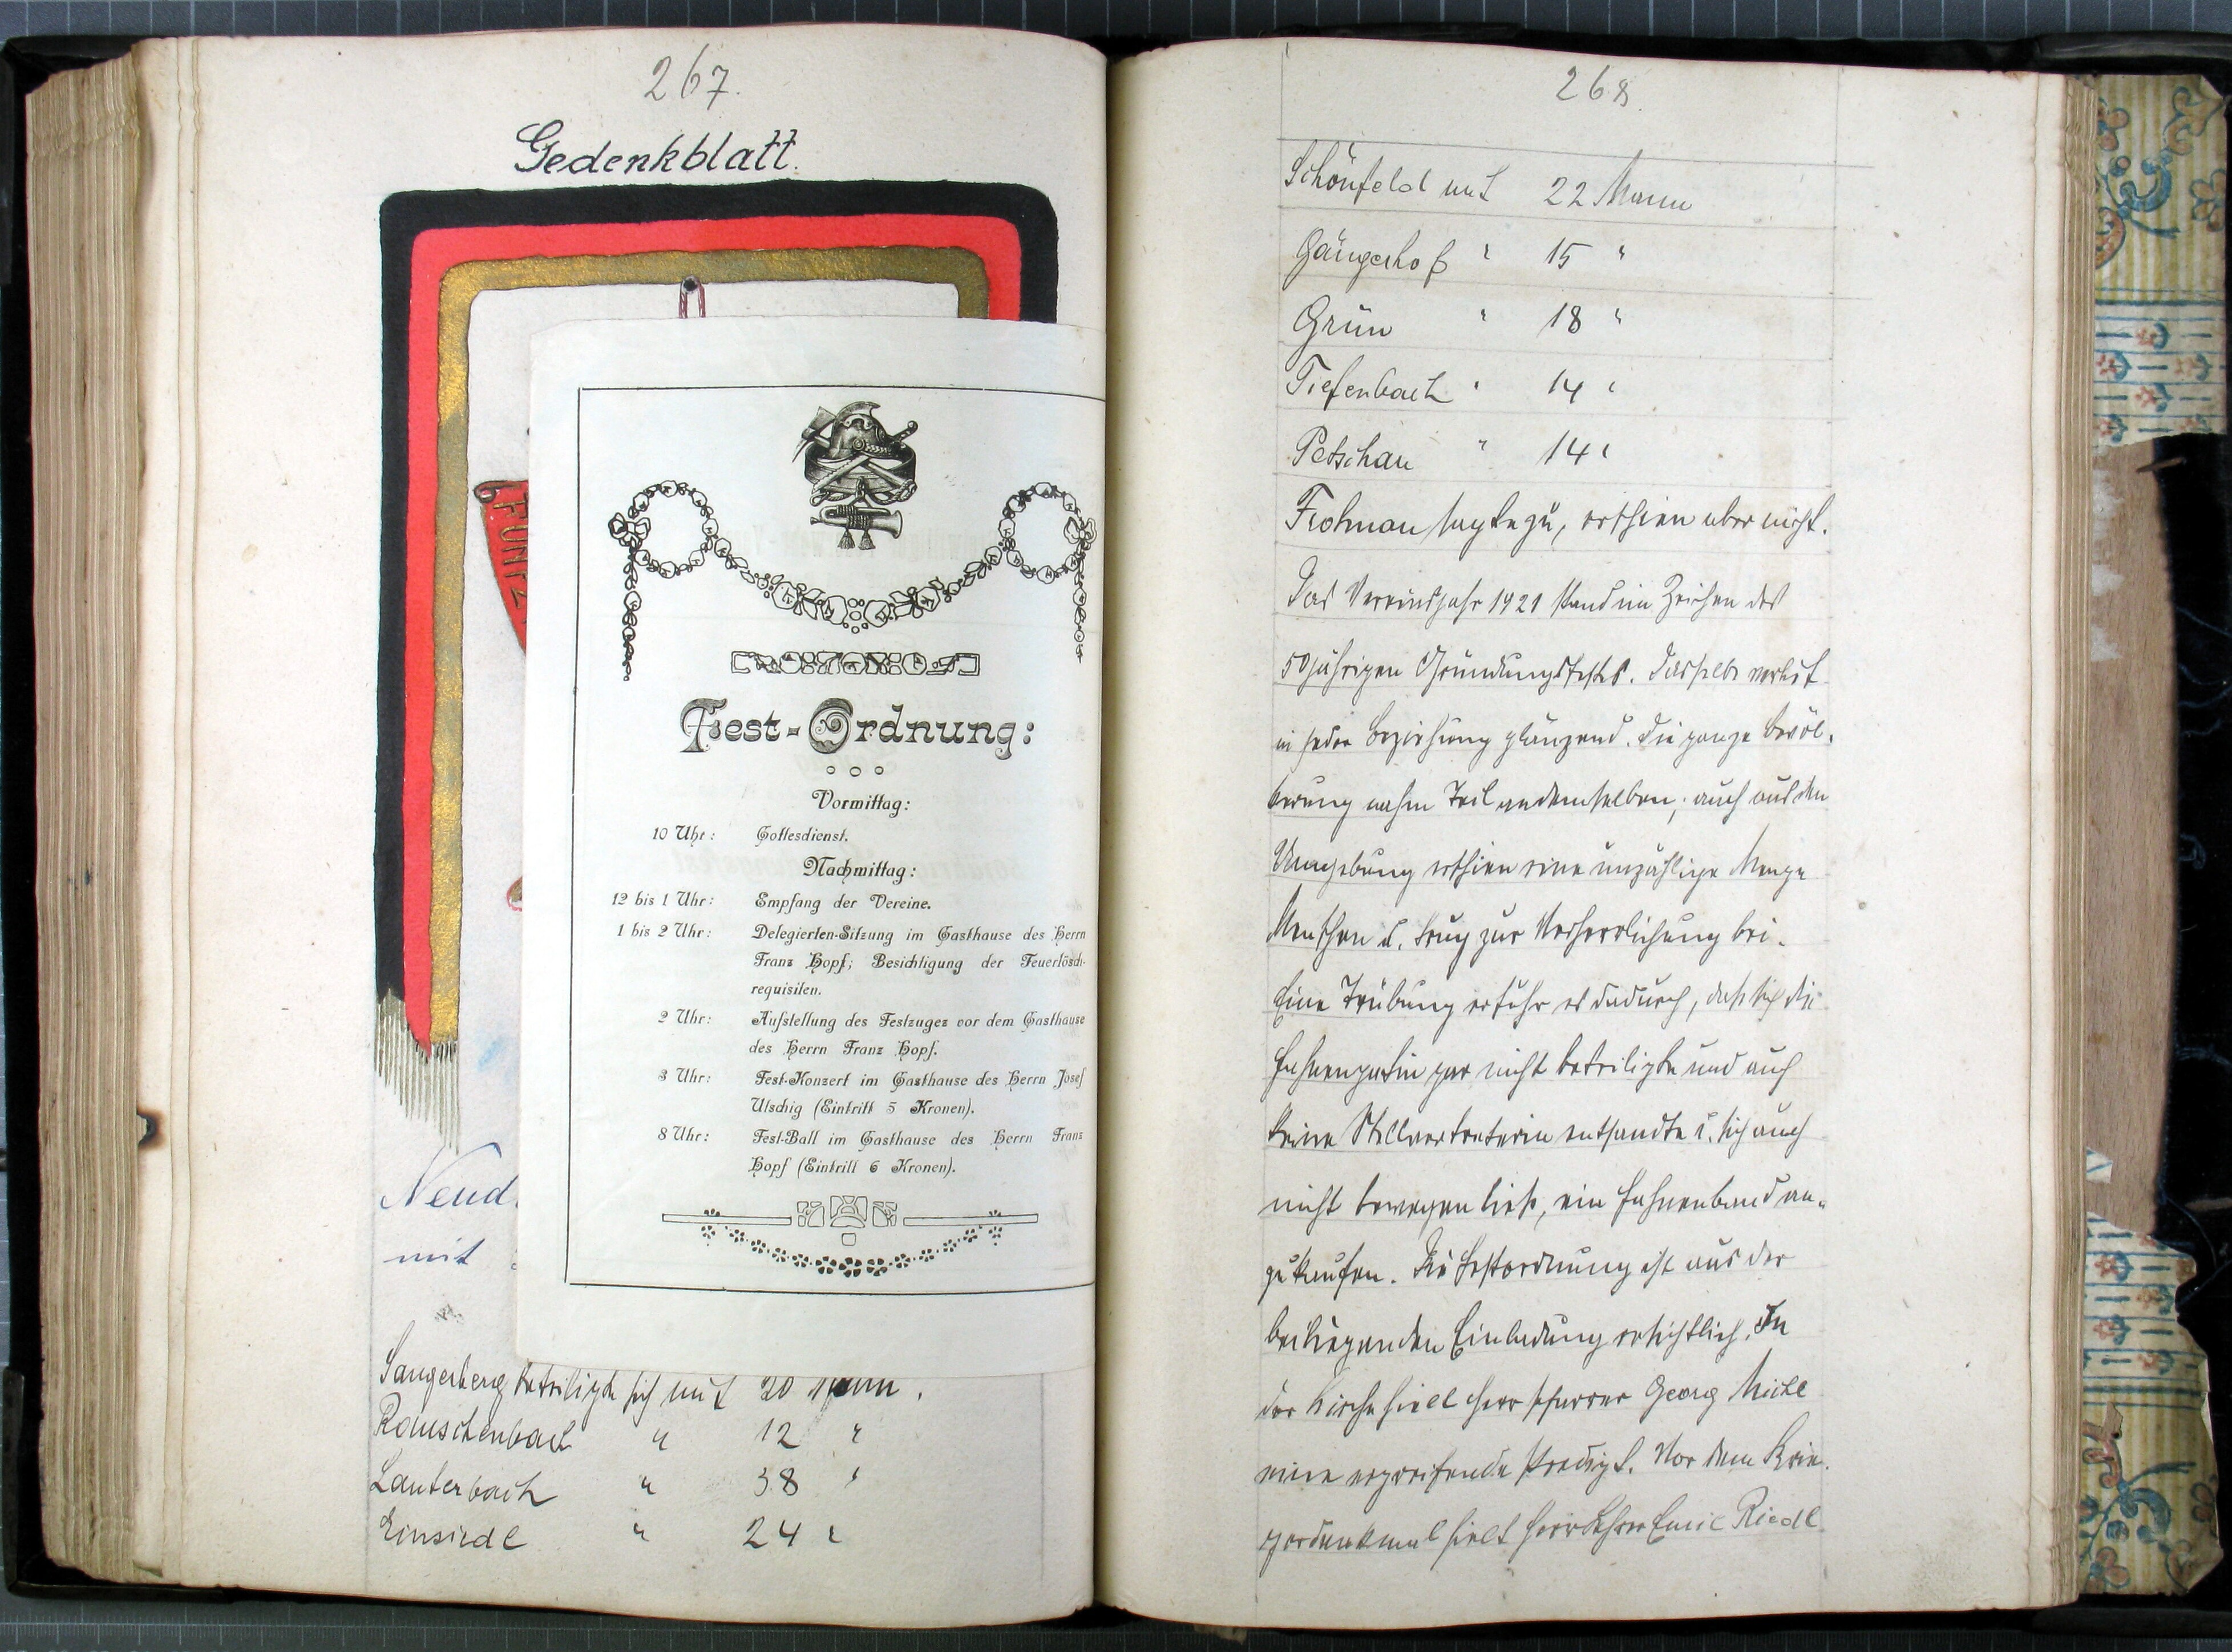 267.
Gedenkblatt.
FÜNFZ
Fest-Ordnung:
Vormittag:
10 Uhr: Gottesdienst.
Nachmittag:
12 bis 1 Uhr: Empfang der Vereine.
1 bis 2 Uhr: Delegierten-Sitzung im Gasthause des Herrn
Franz Hopf; Besichtigung der Feuerlösch-
requisiten.
2 Uhr: Aufstellung des Festzuges vor dem Gasthause
des Herrn Franz Hopf.
3 Uhr: Fest-Konzert im Gasthause des Herrn Josef
Utschig (Eintritt 5 Kronen).
8 Uhr: Fest-Ball im Gasthause des Herrn Franz
Hopf (Eintritt 6 Kronen).
Neud
mit
Sangerberg beteiligte sich mit 20 Mann.
Rauschenbach " 12 "
Lauterbach " 38 "
Einsiedl " 24 "
268.
Schönfeld mit 22 Mann
Gängerhof " 15 "
Grün " 18 "
Tiefenbach " 14 "
Petschau " 14 "
Frohnau sagte zu, erschien aber nicht.
Das Vereinsjahr 1921 stand im Zeichen des
50jährigen Gründungsfestes. Dasselbe verlief
in jeder Beziehung glänzend. Die ganze Bevöl-
kerung nahm Teil an demselben; auch aus der
Umgebung erschien eine unzählige Menge
Menschen u. trug zur Verherrlichung bei.
Eine Trübung erfuhr es dadurch, daß sich die
Fahnenpatin gar nicht beteiligte und auch
keine Stellvertreterin entsandte u. sich auch
nicht bewegen ließ, ein Fahnenband an-
zukaufen. Die Festordnung ist aus der
beiliegenden Einladung ersichtlich. In
der Kirche hielt Herr Pfarrer Georg Michl
eine ergreifende Predigt. Vor dem Krie-
gerdenkmal hielt Herr Lehrer Emil Riedl